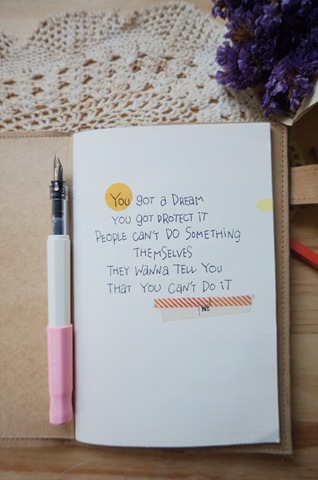 YOU GOT A DREAM
YOU GOT PROTECT IT
PEOPLE CAN'T DO SOMETHING
THEMSELVES
THEY WANNA TELL YOU
THAT YOU CAN'T DO IT
№